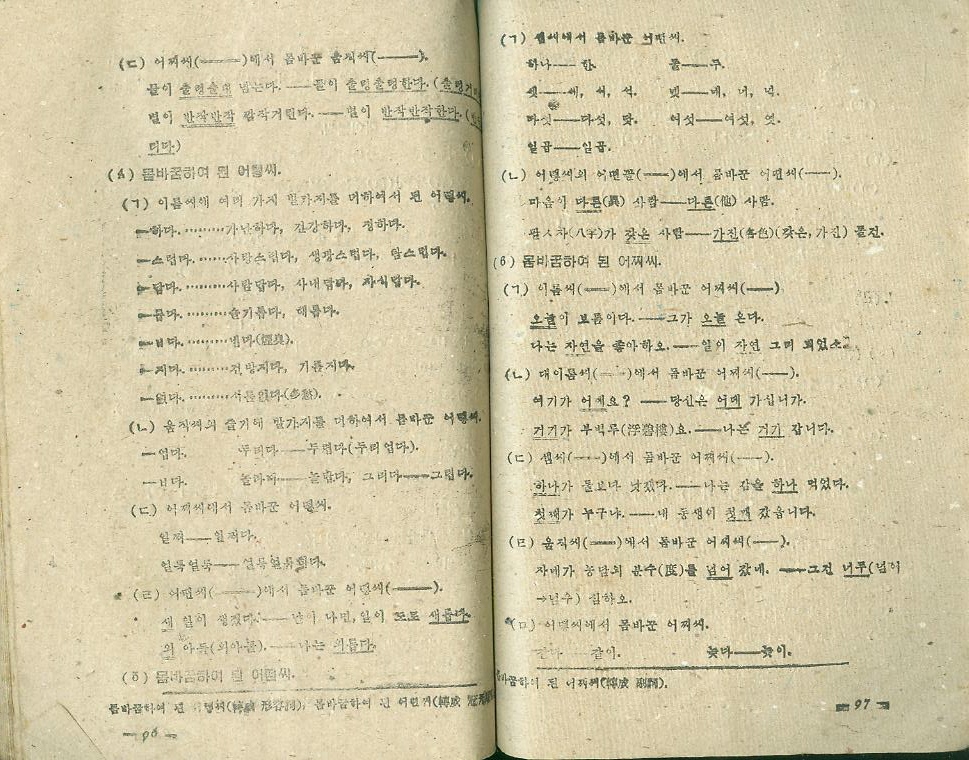 (ㄷ) 어찌씨(———)에서 몸바꾼 움직씨(———).
물이 출렁출렁 넘는다. ——물이 출렁출렁한다. (출렁거
별이 반작반작 깜작거린다. ——별이 반작반작한다.
더다)
(5) 몸바꿈하여 된 어떻씨.
(ㄱ) 이름씨에 여러 가지 발가지를 더하여서 된 어떻씨.
—하다. ………가난하다, 건강하다, 정하다.
—스럽다. ……사랑스럽다, 생광스럽다, 탐스럽다.
—답다. ………사람답다, 사내답다, 자식답다.
—롭다. ………슬기롭다, 해롭다.
—ㅂ다. ………
—지다. ………건방지다, 기름지다.
—없다. ………시름없다(多愁).
(ㄴ) 움직씨의 줄기에 발가지를 더하여서 몸바꾼 어떻씨.
—업다. 두리다——두렵다(두리업다).
—ㅂ다. 놀라다——놀랍다, 그리다——그립다.
(ㄷ) 어찌씨에서 몸바꾼 어떻씨.
일찍——일찍다.
얼룩얼룩——얼룩얼룩하다.
(ㄹ) 어떤씨(———)에서 몸바꾼 어떻씨(———).
새 일이 생겼다.——날이 나면, 일이 도로 새롭다.
외 아들(외아들).——나는 외롭다.
(ㅎ) 몸바꿈하여 된 어떤씨.
몸바꿈하여 된 어떻씨(轉成 形容詞), 몸바꿈하여 된 어떤씨(轉成
— 96 —
(ㄱ) 셈씨에서 몸바꾼 어떤씨.
하나——한. 둘——두.
셋——세, 서, 석. 넷——네, 너, 넉.
다섯——다섯, 닷. 여섯——여섯, 엿.
일곱——일곱.
(ㄴ) 어떻씨의 어떤꼴(———)에서 몸바꾼 어떤씨(———).
마음이 다른(異) 사람——다른(他) 사람.
팔시차(八字)가 갖은 사람——가진(各色)(갖은, 가진) 물건.
(6) 몸바꿈하여 된 어찌씨.
(ㄱ) 이름씨(———)에서 몸바꾼 어찌씨(———)
오늘이 보름이다. ——그가 오늘 온다.
나는 자연을 좋아하오.——일이 자연 그리 되었소.
(ㄴ) 대이름씨(———)에서 몸바꾼 어찌씨(———).
여기가 어데요? ——당신은 어데 가십니가.
거기가 부벽루(浮碧樓)요.——나는 거기 갑니다.
(ㄷ) 셈씨(———)에서 몸바꾼 어찌씨(———).
하나가 둘보다 낫겠다.——나는 감을 하나 먹었다.
첫째가 누구냐.——내 동생이 첫째 갔읍니다.
(ㄹ) 움직씨(———)에서 몸바꾼 어찌씨(———).
자네가 농담의 분수(度)를 넘어 갔네. ——그건 너무(넘어
→넘수) 심하오.
(ㅁ) 어떻씨에서 몸바꾼 어찌씨.
같다——같이. 높다——높이.
몸바꿈하여 된 어찌씨(轉成 副詞).
— 97 —